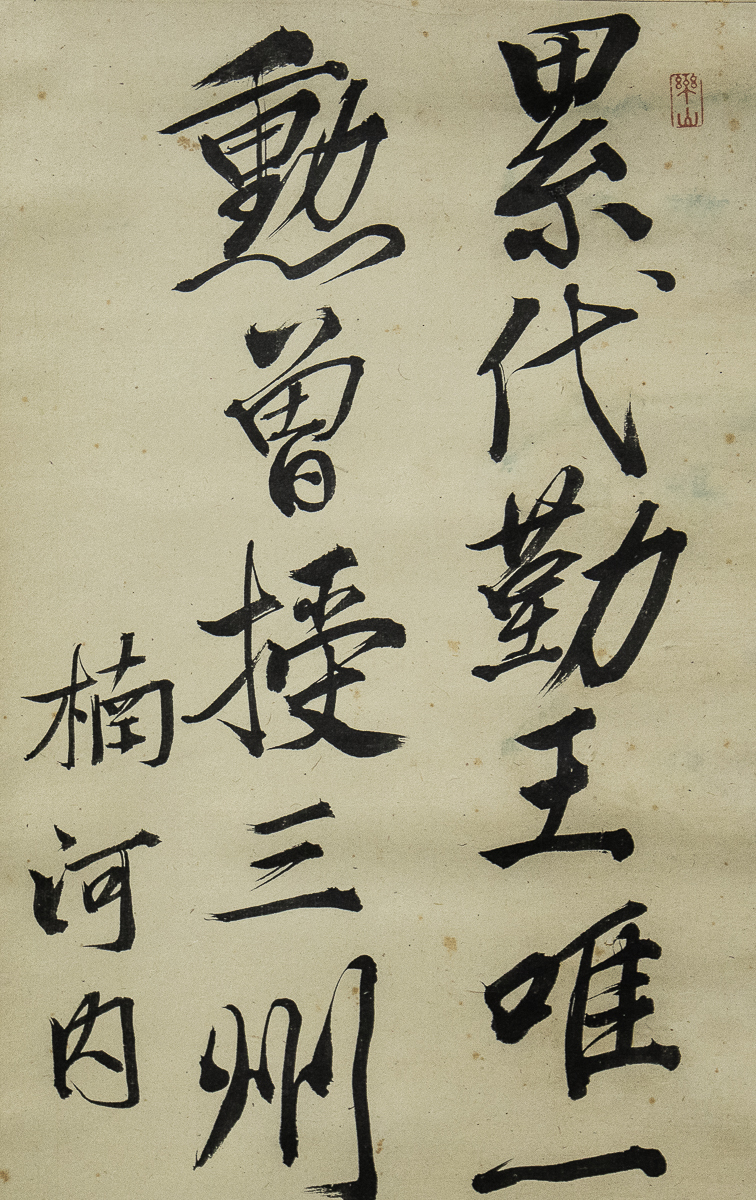 累代勤王唯一
勲曾授三州
楠河内
樂山